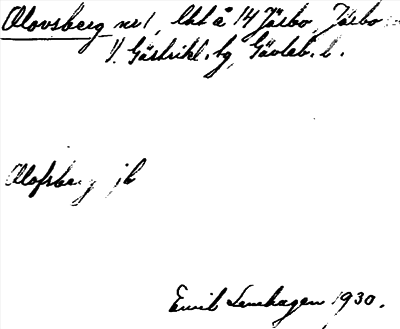 Olovsberg nr 1, lht å 14 Järbo, Järbo
V. Gästrikl. tg, Gävleb. l.
Olofsberg jb
Emil Lenhagen 1930.